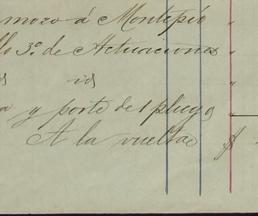 moro á Montepío "
llo 3º. de Actuaciones "
id "
a y porte de 1 pliego "
A la vuelta $